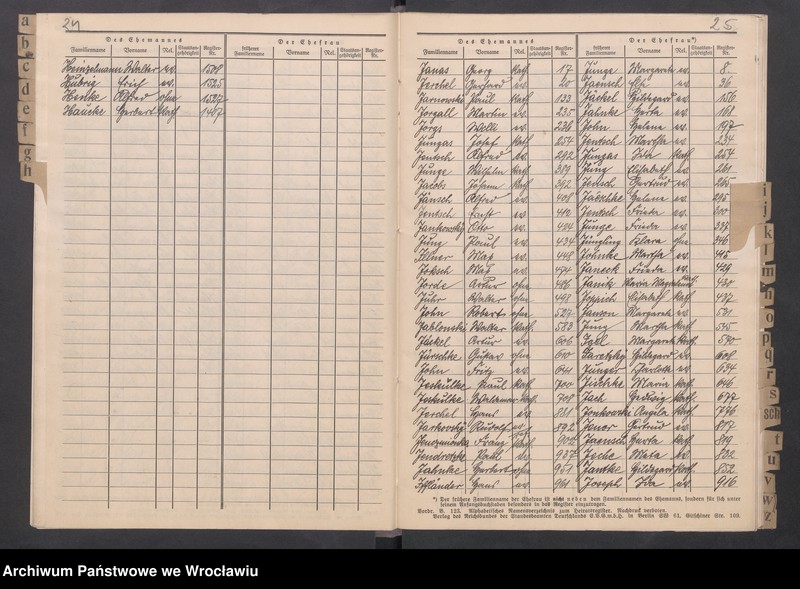 24
Des Ehemannes
Der Ehefrau
Familienname Vorname Rel. Staatsangehörigkeit Register-Nr. früherer Familienname Vorname Rel. Staatsangehörigkeit Register-Nr.
Heinzelmann Walter ev. 1508
Hubrig Erich ev. 1525
Henke Alfred ofne 1527
Haucke Herbert kath. 1487
25.
Des Ehemannes
Der Ehefrau*)
Familienname Vorname Rel. Staatsangehörigkeit Register-Nr. früherer Familienname Vorname Rel. Staatsangehörigkeit Register-Nr.
Janas Georg kath. 17 Junge Margarete ev. 8
Jerchel Gerhard ev. 20 Jaensch ev. 36
Jarnowski Paul kath. 133 Jäckel Hildegard ev. 156
Jorgall Martin ev. 235 Jahnke Herta ev. 168
Jörgs Willi ev. 236 John Helene ev. 197
Jungas Josef kath. 254 Jentsch Martha ev. 234
Jentsch Alfred ev. 292 Jungas Ida kath. 254
Junge Wilhelm kath. 389 Jung Elisabeth ev. 261
Jacobs Johann kath. 392 Gertrud ev. 265
Jänsch Alfred ev. 408 Helene ev. 295
Jentsch Ernst ev. 412 Jentsch Frieda ev.
Jankowsky Otto ev. 424 Junge Frieda ev. 337
Jung Paul ev. 434 Jüngling Klara ofne 346
Illner Max ev. 448 Johnke Martha ev. 415
Joksch Max ev. 474 Janeck Frieda ev. 429
Jorde Artur ofne 486 Janik Maria Magdalena kath. 430
Juhr Walter ofne 498 Joppich Elisabeth kath. 437
John Robert ofne 527 Janson Margarete ev. 521
Jablonski Walter kath. 583 Jung Martha kath. 545
Jäckel Artur ev. 606 Igel Margarete kath. 590
Jurschke Gustav ofne 610 Hildegard ev. 608
John Fritz ev. 641 Junger Charlotte ev. 634
Jeskulke Paul kath. 700 Maria kath. 646
Jeskulke Waldemar kath. 708 Jach Hedwig kath. 677
Jerchel Hans ev. 881 Jonkowski Angela kath. 796
Jarkovsky Rudolf ev. 892 Janer Gertrud ev. 817
Franz kath. Jaensch Herta kath. 819
Jendretzke Paul ev. 937 Jeche Meta ev. 832
Jahnke Herbert ofne 951 Jantke Hildegard kath. 852
Iffländer Hans ev. 961 Joseph Ida ev. 916
*) Der frühere Familienname der Ehefrau ist nicht neben dem Familiennamen des Ehemannes, sondern für sich unter
seinem Anfangsbuchstaben besonders in das Register einzutragen.
Vordr. B. 123. Alphabetisches Namensverzeichnis zum Heiratsregister. Nachdruck verboten.
Verlag des Reichsbundes der Standesbeamten Deutschlands E.V.G.m.b.H. in Berlin SW 61, Gitschiner Str. 109.
a
b
c
d
e
f
g
h
i
j
k
l
m
n
o
p
q
r
s
sch
t
u
v
w
z
Archiwum Państwowe we Wrocławiu